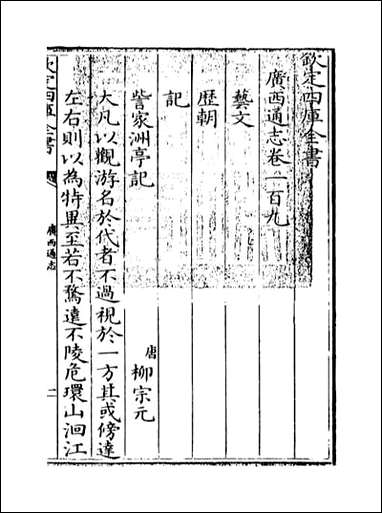 欽定四庫全書
廣西通志卷一百九
藝文
歴朝
記
訾家洲亭記 唐 柳宗元
大凡以觀游名於代者不過視於一方其或傍達
左右則以為特異至若不騖逺不陵危環山洄江
欽定四庫全書
廣西通志